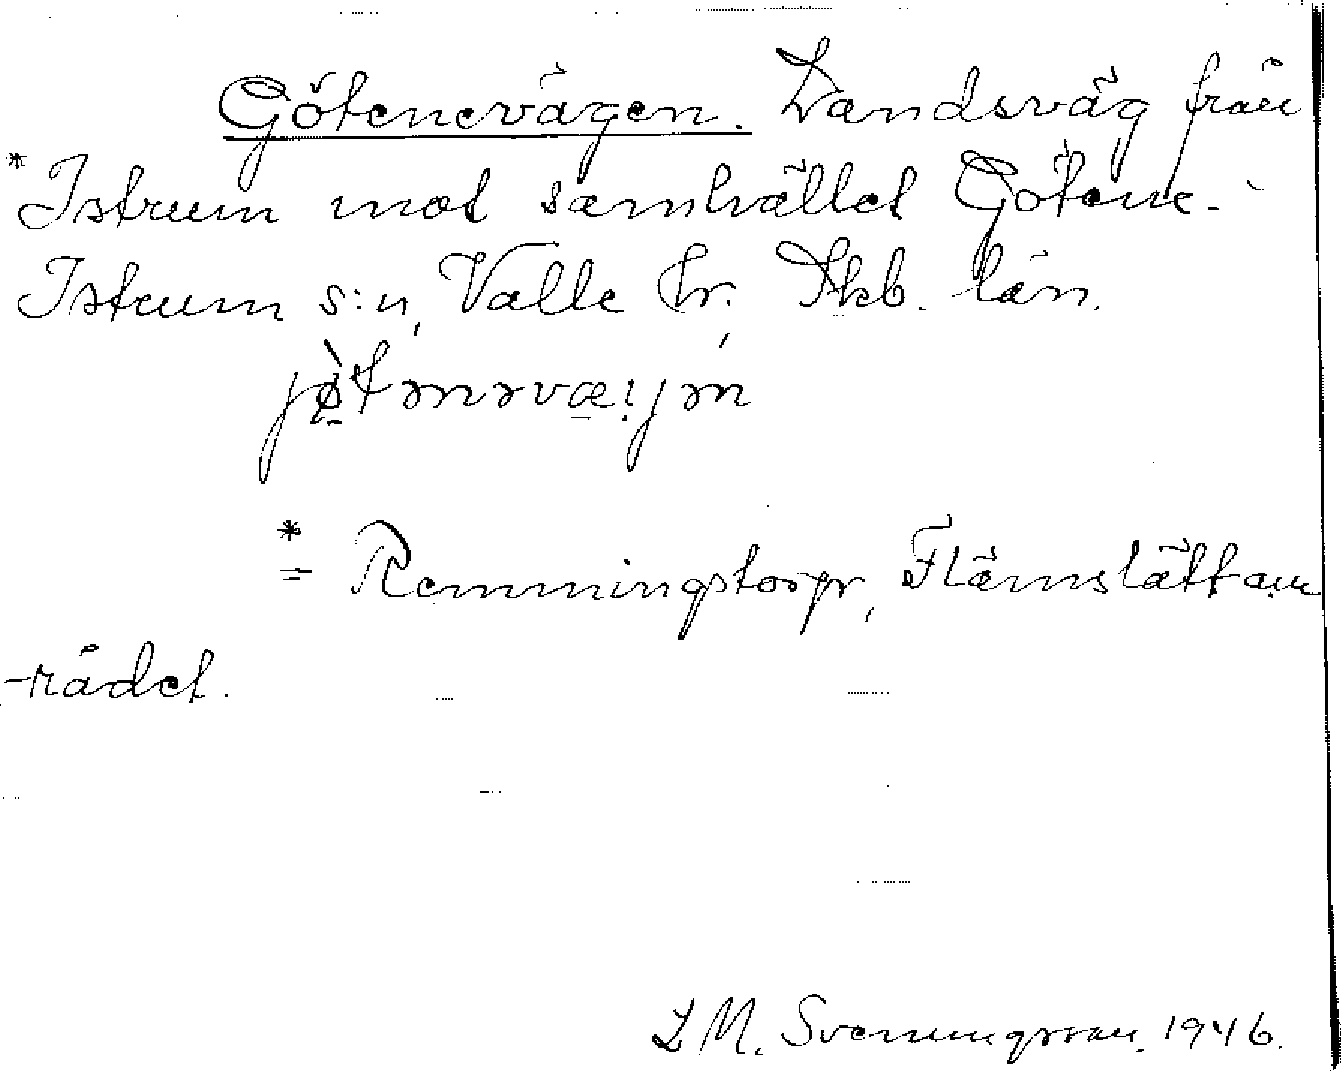 Götenevägen. Landsväg från
*Istrum mot samhället Götene. -
Istrum s:n, Valle hr, Skb. län.
jø̀tənəvæ:jən
* = Remmingstorp, Flämslättom
-rådet.
L M. Svenungsson. 1946.